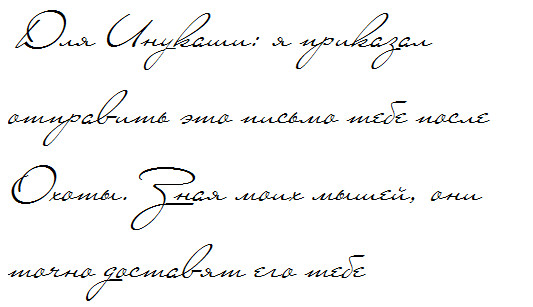 Для Инукаши: я приказал
отправить это письмо тебе после
Охоты. Зная моих мышей, они
точно доставят его тебе